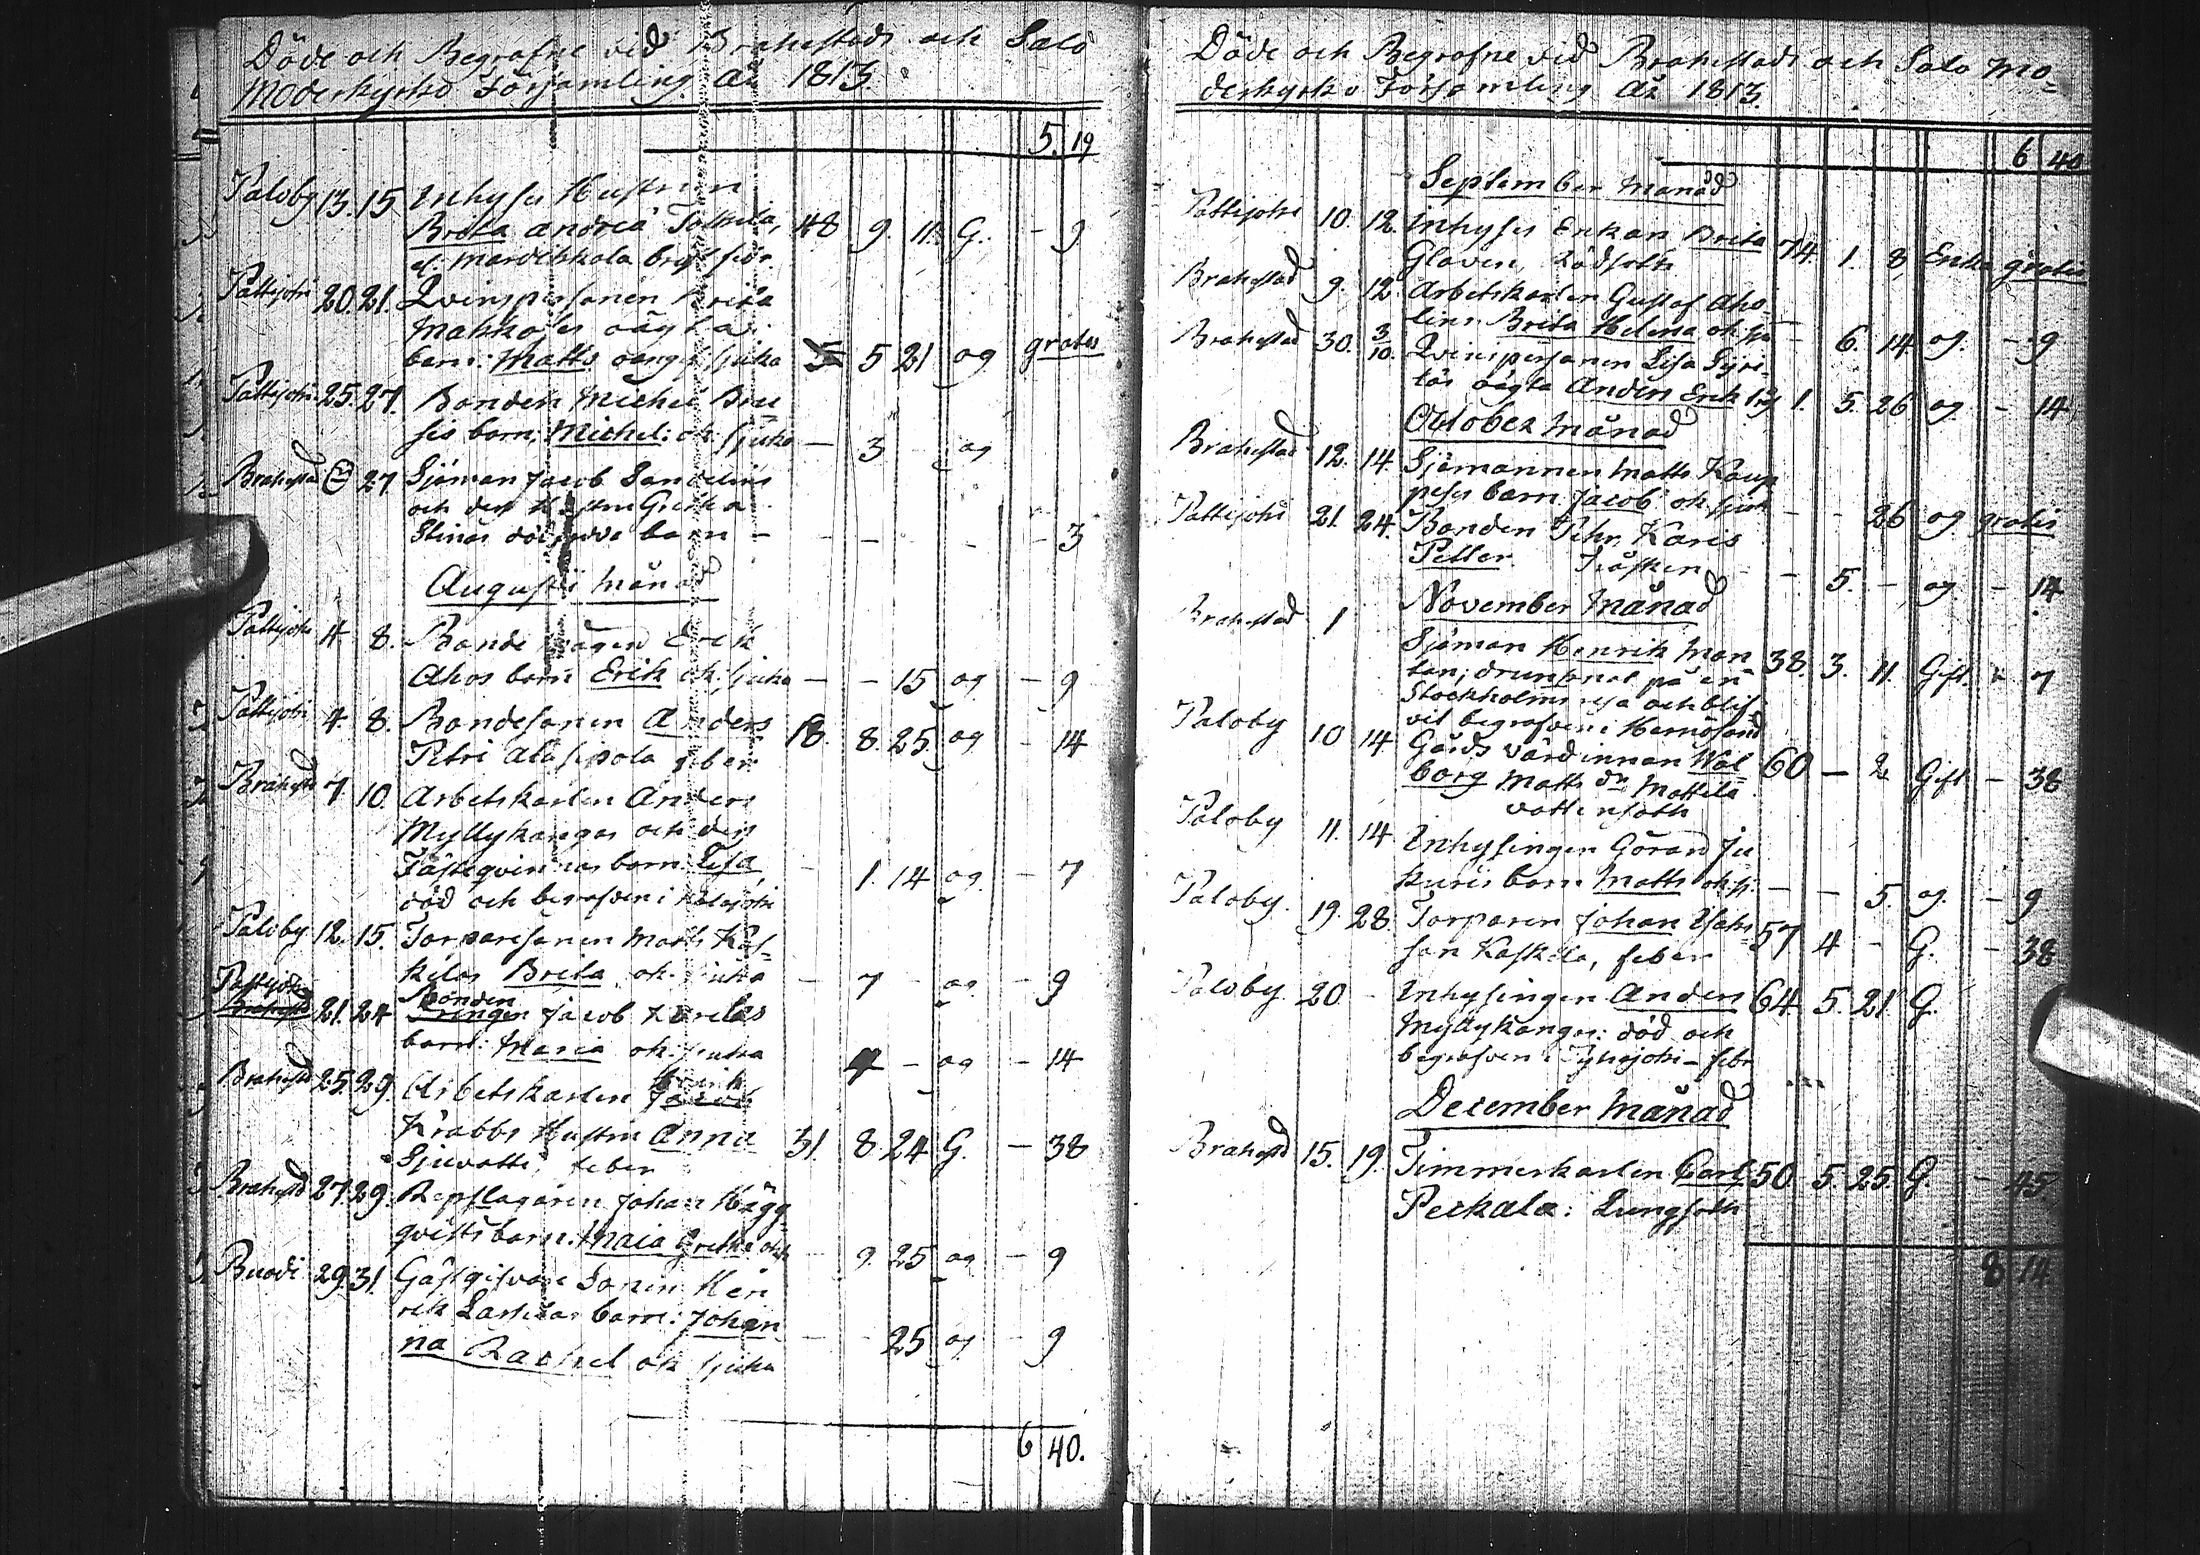 Döde och Begrafne vid Brahestads och Salo
Moderkyrko Församling År 1813.
5. 19
Paloby 13. 15 Inhyses Hustrun
Brita Andreæ 48 9. 11. G. - 9
Pattijoki 20. 21. Qvinspersonen Brita
oägta
barn: Matts oangif. sjuka 5 21 og gratis
Pattijoki 25. 27. Bonden Michel
barn: Michel: ok: sjuka - 3 og
Brahestad 27 Sjöman Jacob Sandelins
och dess Hustru Greta
Stinas dödfödde barn - - - - 3
Augusti Månad
Pattijoki 4 8. Bonde Erik
Ahos barn Erik ok: sjuka - - 15 og - 9
Pattijoki 4. 8. Bondesonen Anders 18. 8. 25 og - 14
Petri Alasipola feber
Brahestad 7. 10. Arbetskarlen Anders
Myllykangas och dess
Fästeqvinnas barn Lisa - 1. 14 og - 7
död och begrafven i Kalajoki
Paloby 12. 15. Torparesonen Matts Kas-
kilas Brita ok: sjuka - 7 - og - 9
Pattijoki
Brahestad 21. 24 Bonden Jacob
barn: Maria ok: sjuka 4 - og - 14
Brahestad 25. 29. Arbetskarlen Henrik
Krabbs Hustru Anna 31. 8. 24 G. - 38
feber
Brahestad 27. 29. Repslagaren Johan Hägg-
qvists barn: Maia Greta ok: - 9. 25 og - 9
Buodi 29. 31. Gästgifvare Sonen Hen
rik Lassilas barn: Johan
na Rachel ok sjuka - - 25 og - 9
6 40.
Döde och Begrafne vid Brahestads och Salo Mo=
derkyrko Församling År 1813.
6 40
September Månad
Pattijoki 10. 12. Inhyses Enkan Brita 74. 1. 8 Enka gratis
Glaven, Rödsoth
Brahestad 9. 12 Arbetskarlen Gustaf Aho-
lins Brita Helena ok: sju - 6. 14. og. - 9
Brahestad 30. 3/10. Qvinspersonen Lisa
oägta Anders Erik 1. 5. 26 og - 14
October Månad
Brahestad 12. 14. Sjömannen Matts Kaup
pises barn Jacob ok: sjuk - - 26 og gratis
Pattijoki 21. 24. Bonden Pehr Karis
Petter Tråsken - 5. - og - 14
November Månad
Brahestad 1
Sjöman Henrik Man 38. 3. 11. Gift. - 7
tan; drunknat på en
Stockholms resa och blif-
vit begrafven i Hernösand
Paloby 10 14 Gårds Värdinnan Wal- 60 - 2 Gift - 38
borg Matts dr. Mattila
vattensoth
Paloby 11. 14 Inhysingen Göran Ju
kuris barn Matts ok: sj. - - 5. og. - 9
Paloby. 19. 28. Torparen Johan Isaks- 57 4 - G. - 38
son Kaskila, feber
Paloby 20 - Inhysingen Anders 64. 5. 21. G.
Myllykangas: död och
begrafven i Pyhäjoki - feber
December Månad
Brahestad 15. 19. Timmerkarlen Carl 50. 5. 25. G. - 45.
Peckala: Lungsoth
8 14